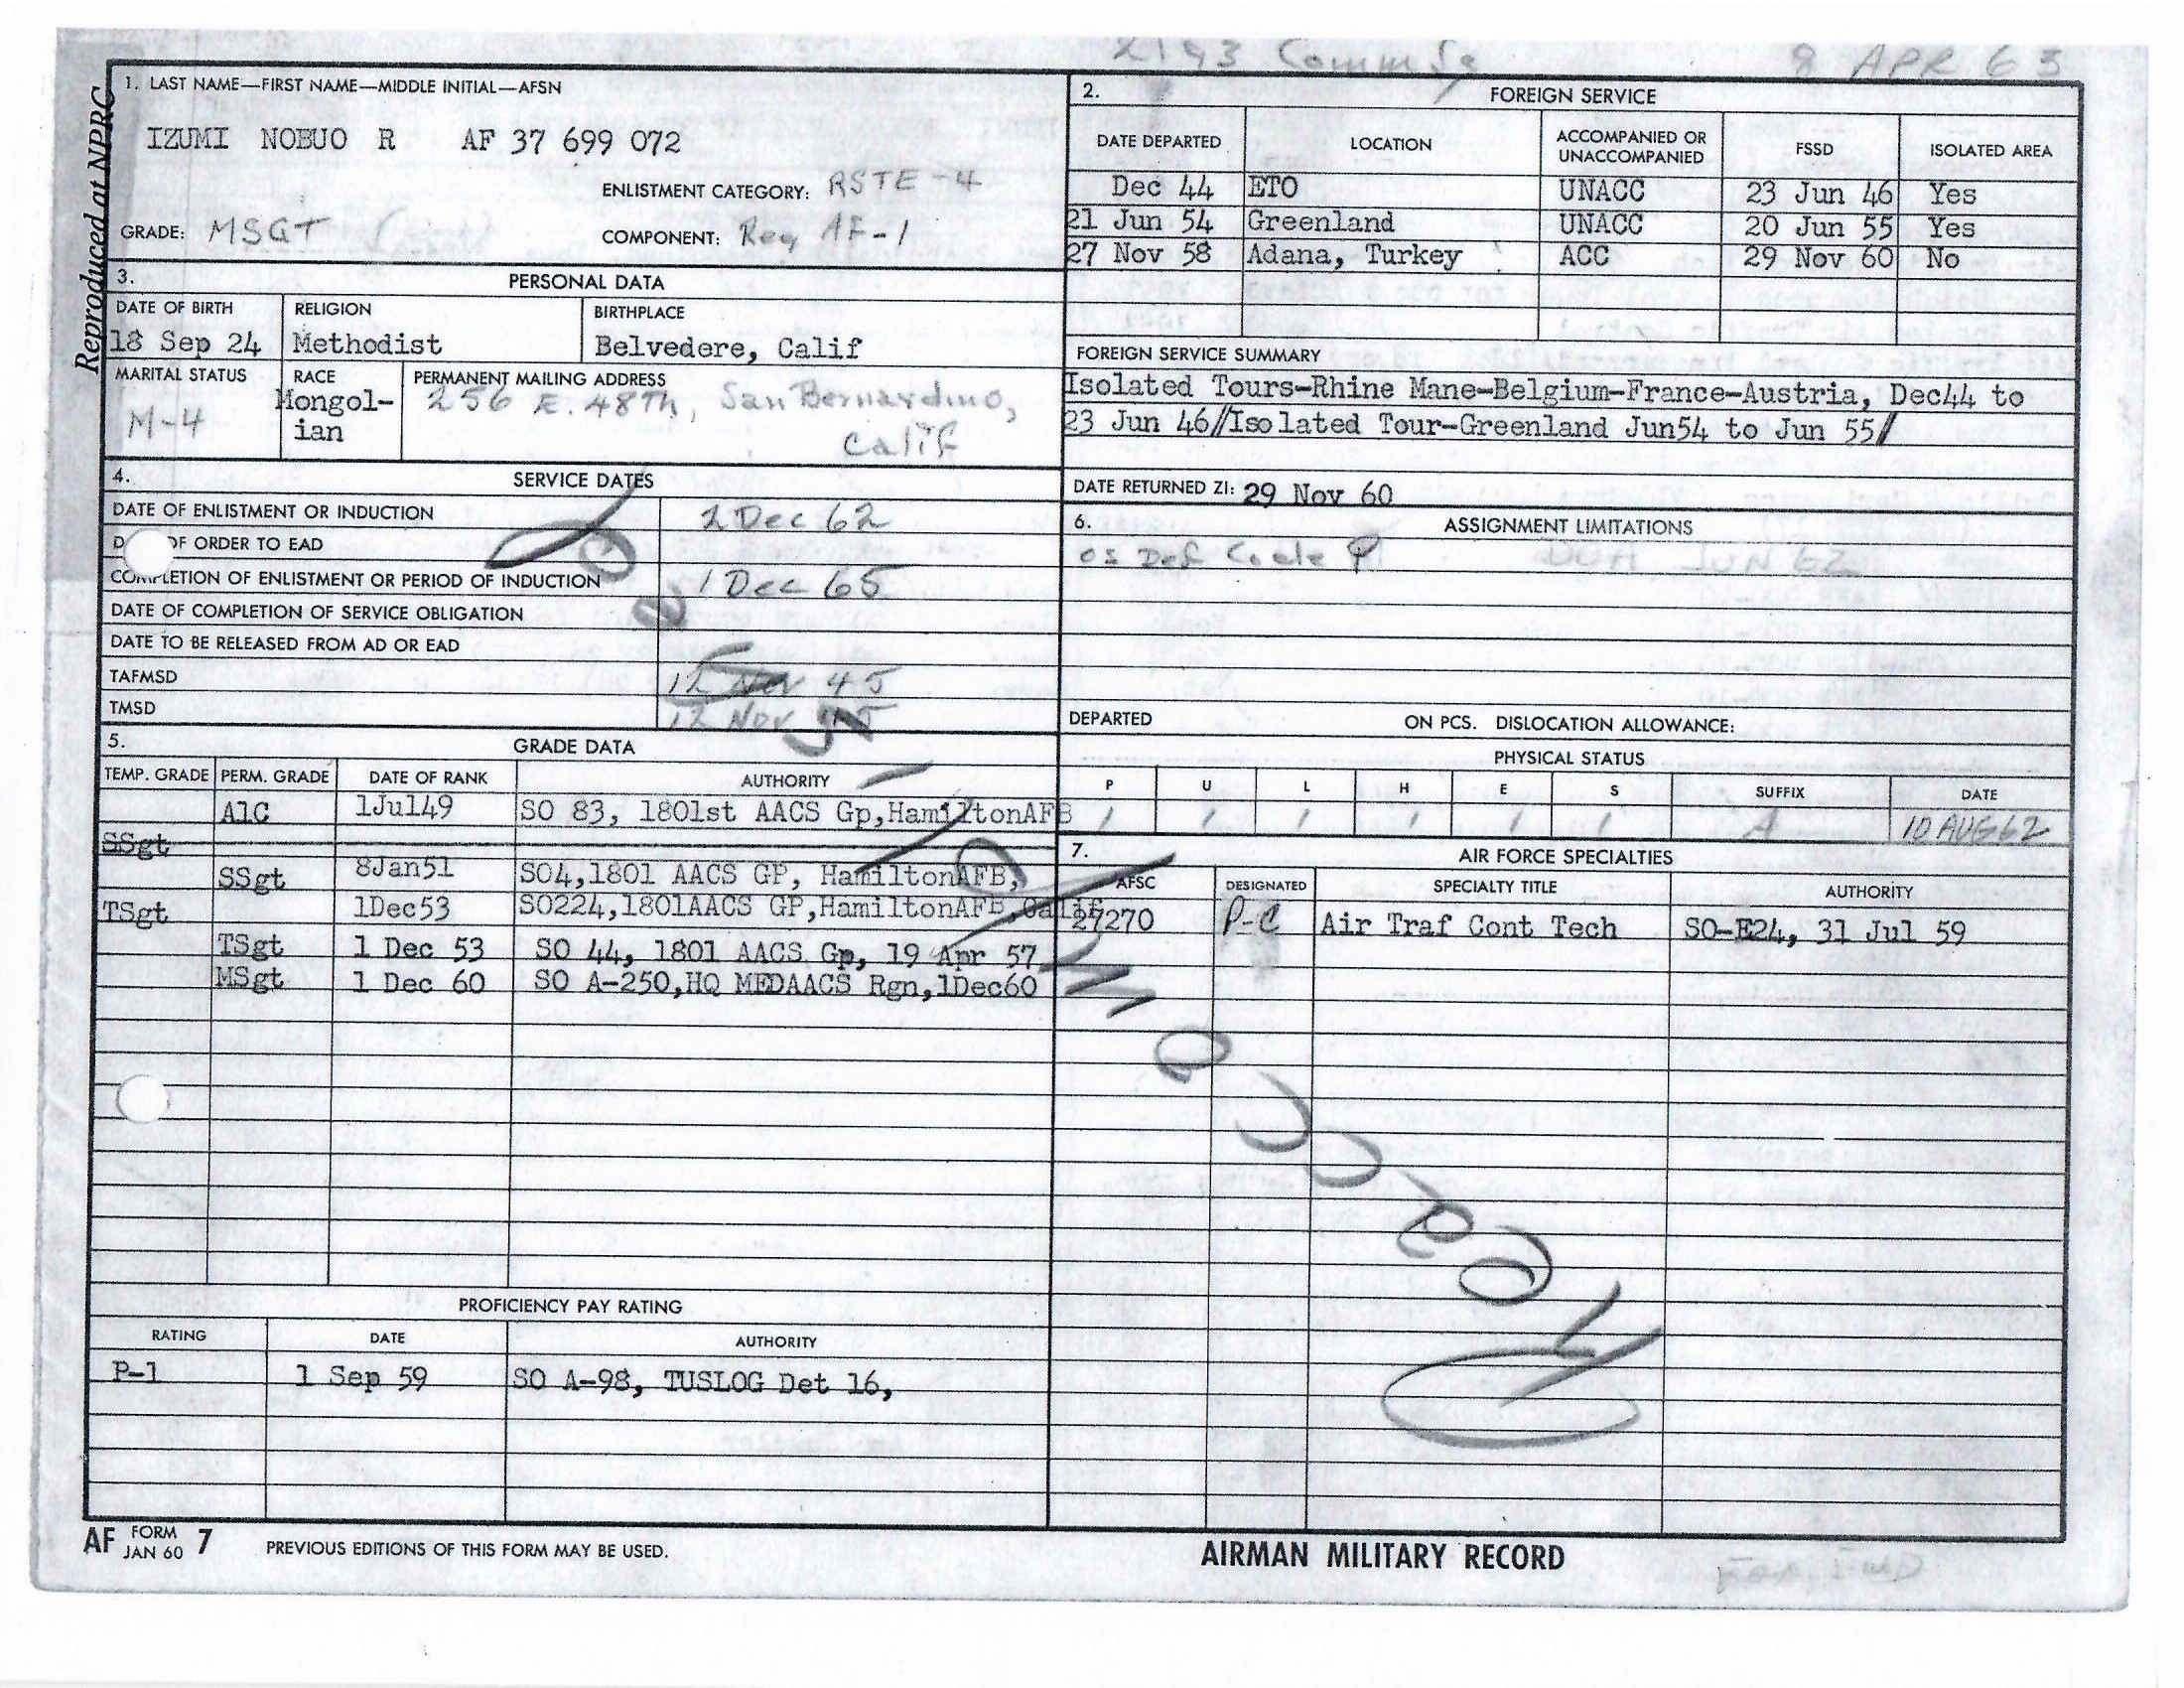 2193 Comm Sq 8 APR 63
Reproduced at NPRC
1. LAST NAME—FIRST NAME—MIDDLE INITIAL—AFSN
IZUMI NOBUO R AF 37 699 072
ENLISTMENT CATEGORY: RSTE-4
GRADE: MSGT
COMPONENT: Reg AF-1
2. FOREIGN SERVICE
DATE DEPARTED LOCATION ACCOMPANIED OR UNACCOMPANIED FSSD ISOLATED AREA
Dec 44 ETO UNACC 23 Jun 46 Yes
21 Jun 54 Greenland UNACC 20 Jun 55 Yes
27 Nov 58 Adana, Turkey ACC 29 Nov 60 No
FOREIGN SERVICE SUMMARY
Isolated Tours-Rhine Mane-Belgium-France-Austria, Dec44 to
23 Jun 46//Isolated Tour-Greenland Jun54 to Jun 55/
DATE RETURNED ZI: 29 Nov 60
3. PERSONAL DATA
DATE OF BIRTH RELIGION BIRTHPLACE
18 Sep 24 Methodist Belvedere, Calif
MARITAL STATUS RACE PERMANENT MAILING ADDRESS
M-4 Mongol-
ian
256 E. 48Th, San Bernardino,
Calif
4. SERVICE DATES
DATE OF ENLISTMENT OR INDUCTION 2 Dec 62
OF ORDER TO EAD
COMPLETION OF ENLISTMENT OR PERIOD OF INDUCTION 1 Dec 65
DATE OF COMPLETION OF SERVICE OBLIGATION
DATE TO BE RELEASED FROM AD OR EAD
TAFMSD 12 Nov 45
TMSD 12 Nov 45
5. GRADE DATA
TEMP. GRADE PERM. GRADE DATE OF RANK AUTHORITY
A1C 1Jul49 SO 83, 1801st AACS Gp,HamiltonAFB
SSgt
SSgt 8Jan51 SO4,1801 AACS GP, HamiltonAFB,
TSgt 1Dec53 SO224,1801AACS GP,HamiltonAFB,Calif
TSgt 1 Dec 53 SO 44, 1801 AACS Gp, 19 Apr 57
MSgt 1 Dec 60 SO A-250,HQ MEDAACS Rgn,1Dec60
PROFICIENCY PAY RATING
RATING DATE AUTHORITY
P-1 1 Sep 59 SO A-98, TUSLOG Det 16,
6. ASSIGNMENT LIMITATIONS
OS Def Code
JUN 62
DEPARTED ON PCS. DISLOCATION ALLOWANCE:
PHYSICAL STATUS
P U L H E S SUFFIX DATE
1 1 1 1 1 1 A 10 AUG 62
7. AIR FORCE SPECIALTIES
AFSC DESIGNATED SPECIALTY TITLE AUTHORITY
27270 P-C Air Traf Cont Tech SO-E24, 31 Jul 59
AF FORM JAN 60 7 PREVIOUS EDITIONS OF THIS FORM MAY BE USED.
AIRMAN MILITARY RECORD